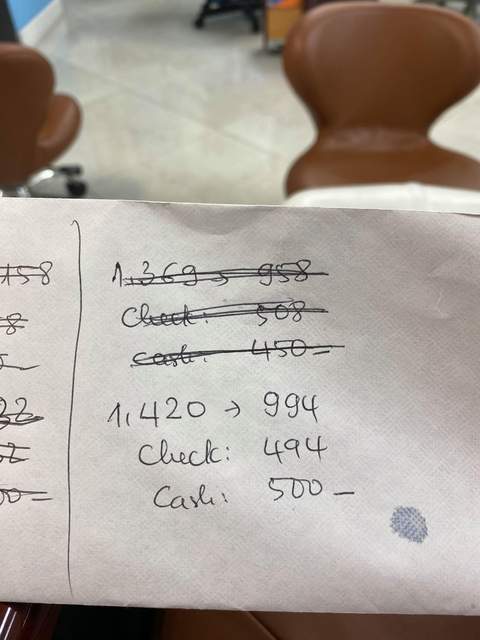 158
8
1,369 → 958
Check: 508
Cash: 450 –
1,420 → 994
Check: 494
Cash: 500 –